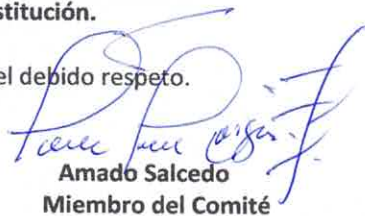 stitución.
el debido respeto.
Amado Salcedo
Miembro del Comité